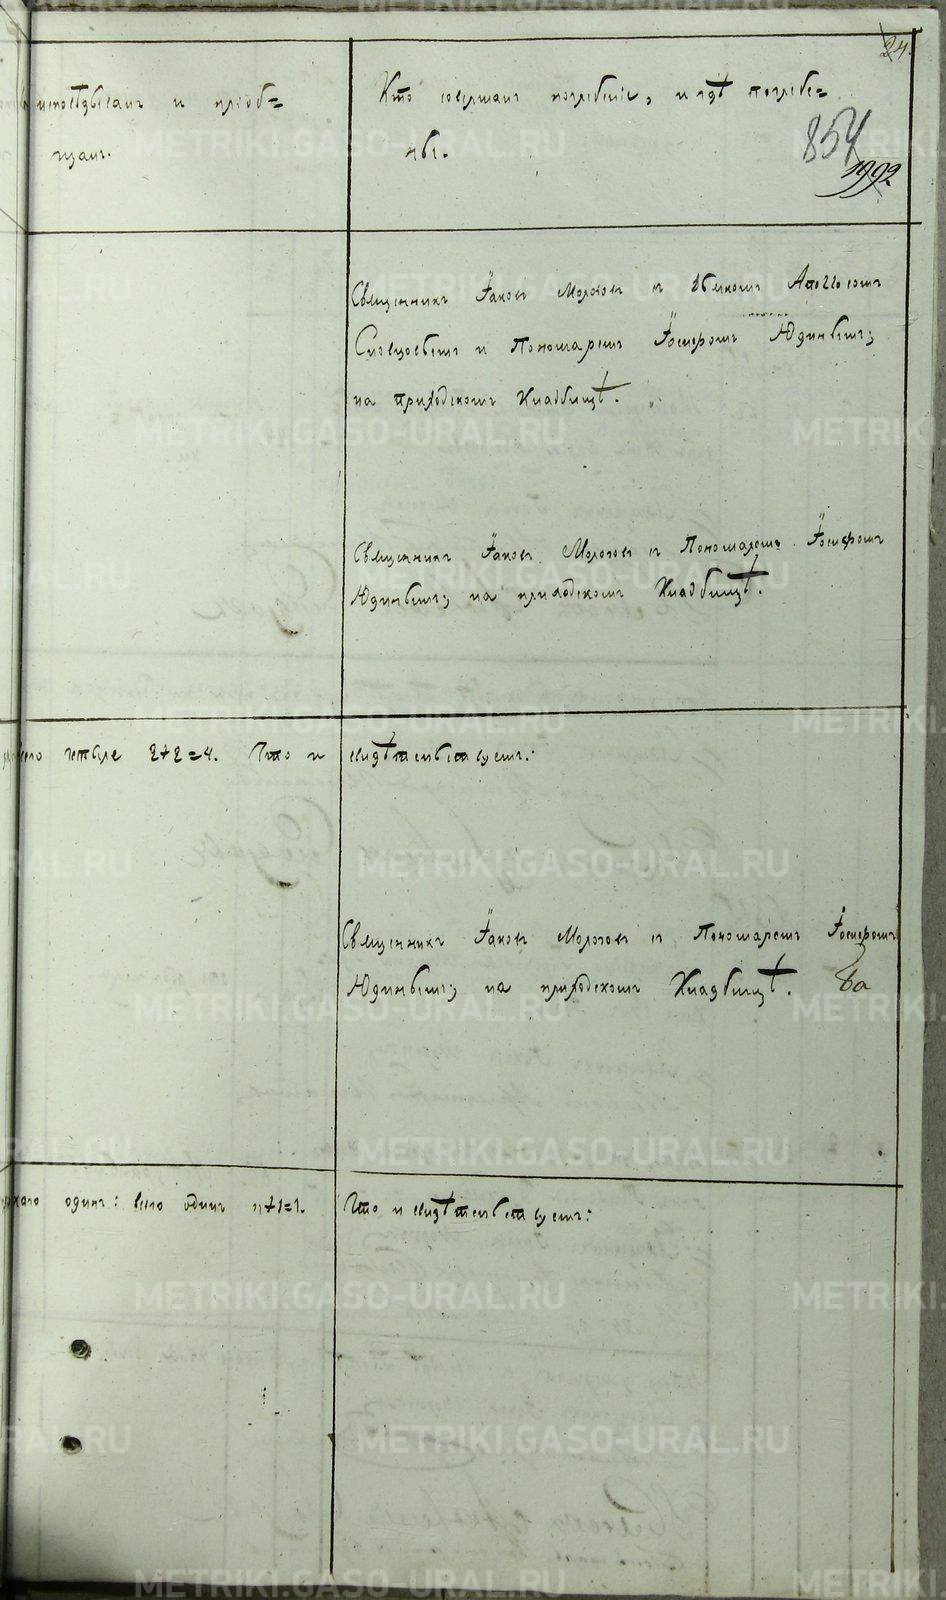 24.
исповѣдывалъ и пріоб=
щалъ.
Кто совершалъ погребеніе, и гдѣ погребе=
ны.
854
1992
Священникъ Іаковъ Молоховъ съ Дьякомъ
Словцовымъ и Пономаремъ Іосифомъ Юдинымъ;
на приходскомъ Кладбищѣ.
Священникъ Іаковъ Молоховъ съ Пономаремъ Іосифомъ
Юдинымъ; на приходскомъ Кладбищѣ.
четыре 2+2=4. Что и свидѣтельствуемъ:
Священникъ Іаковъ Молоховъ съ Пономаремъ Іосифомъ
Юдинымъ; на приходскомъ Кладбищѣ.
одинъ: всего одинъ
Что и свидѣтельствуемъ:
METRIKI.GASO-URAL.RU